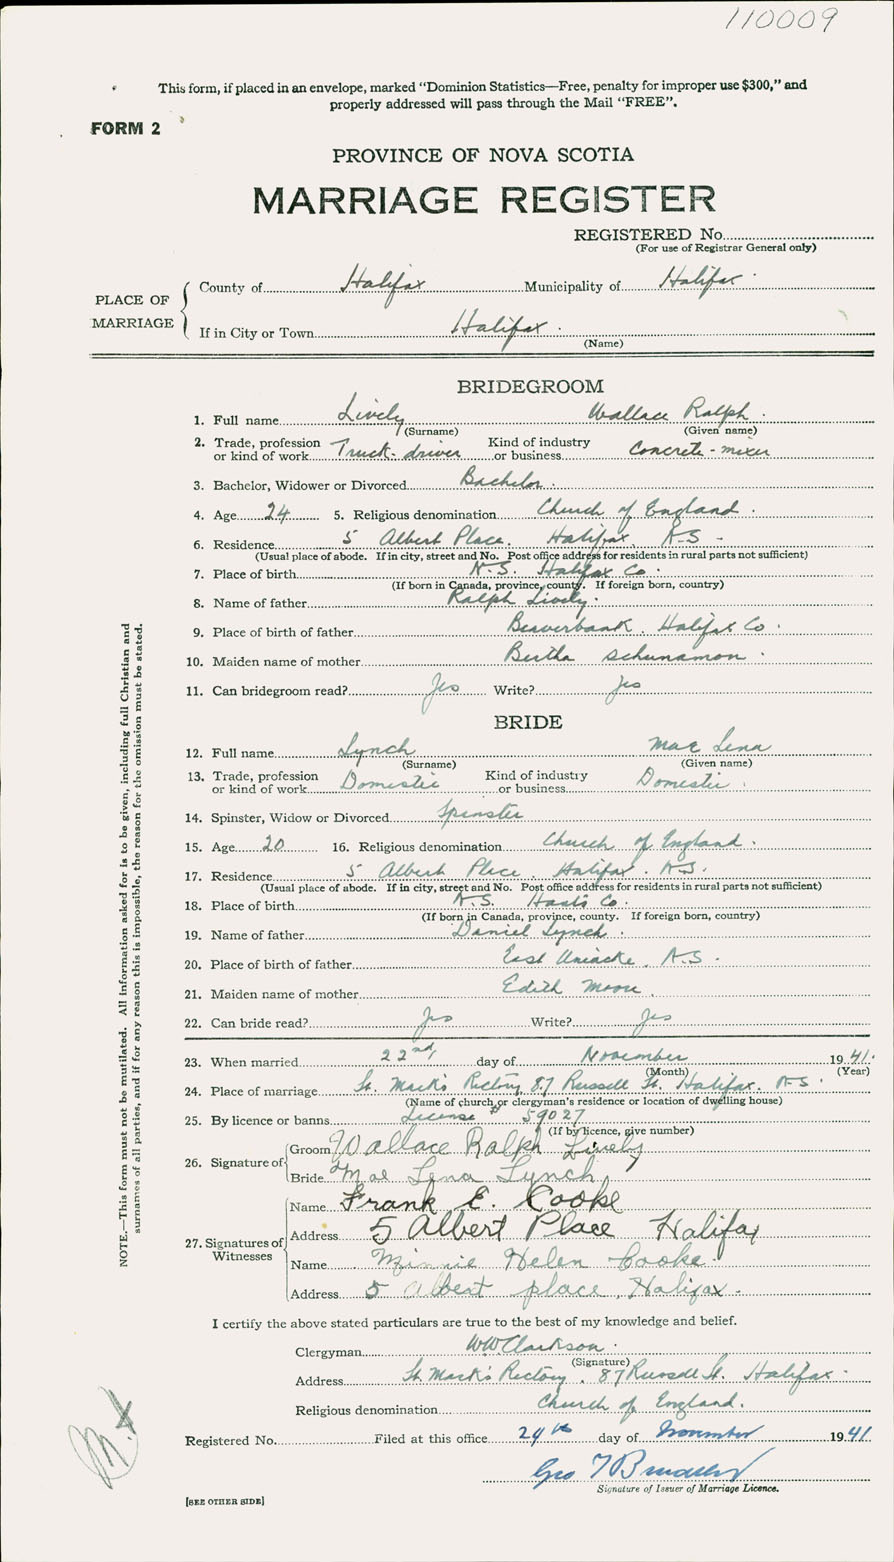 110009
This form, if placed in an envelope, marked "Dominion Statistics—Free, penalty for improper use $300," and
properly addressed will pass through the Mail "FREE".
FORM 2
PROVINCE OF NOVA SCOTIA
MARRIAGE REGISTER
REGISTERED No.
(For use of Registrar General only)
PLACE OF MARRIAGE
County of Halifax Municipality of Halifax
If in City or Town Halifax.
(Name)
BRIDEGROOM
1. Full name Lively Wallace Ralph.
(Surname) (Given name)
2. Trade, profession or kind of work Truck-driver Kind of industry or business Concrete-mixer
3. Bachelor, Widower or Divorced Bachelor.
4. Age 24 5. Religious denomination Church of England.
6. Residence 5 Albert Place. Halifax, N.S.
(Usual place of abode. If in city, street and No. Post office address for residents in rural parts not sufficient)
7. Place of birth N.S. Halifax Co.
(If born in Canada, province, county. If foreign born, country)
8. Name of father Ralph Lively.
9. Place of birth of father Beaverbank. Halifax Co.
10. Maiden name of mother Bertha
11. Can bridegroom read? Yes Write? Yes
BRIDE
12. Full name Lynch Mae Lena
(Surname) (Given name)
13. Trade, profession or kind of work Domestic Kind of industry or business Domestic.
14. Spinster, Widow or Divorced Spinster
15. Age 20 16. Religious denomination Church of England.
17. Residence 5 Albert Place. Halifax. N.S.
(Usual place of abode. If in city, street and No. Post office address for residents in rural parts not sufficient)
18. Place of birth N.S. Hants Co.
(If born in Canada, province, county. If foreign born, country)
19. Name of father Daniel Lynch.
20. Place of birth of father East Uniacke. N.S.
21. Maiden name of mother Edith
22. Can bride read? Yes Write? Yes
23. When married 22nd, day of November 1941.
(Month) (Year)
24. Place of marriage St. Mark's Rectory, 87 Russell St. Halifax. N.S.
(Name of church or clergyman's residence or location of dwelling house)
25. By licence or banns License # 59027
(If by licence, give number)
26. Signature of
Groom Wallace Ralph Lively
Bride Mae Lena Lynch
27. Signatures of Witnesses
Name Frank E. Cooke
Address 5 Albert Place Halifax
Name Minnie Helen Cooke.
Address 5 albert place, Halifax.
I certify the above stated particulars are true to the best of my knowledge and belief.
Clergyman WW Clarkson.
(Signature)
Address St. Mark's Rectory. 87 Russell St. Halifax.
Religious denomination Church of England.
Registered No. Filed at this office 24th day of November 1941
Geo T
Signature of Issuer of Marriage Licence.
[SEE OTHER SIDE]
NOTE.—This form must not be mutilated. All information asked for is to be given, including full Christian and
surnames of all parties, and if for any reason this is impossible, the reason for the omission must be stated.